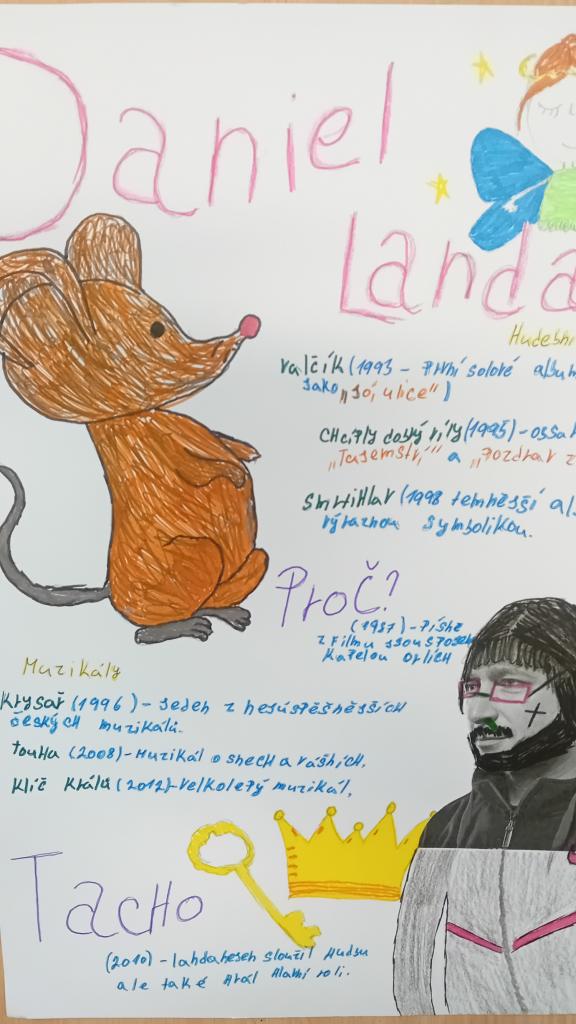 Daniel
Landa
Hudební
Valčík (1993 - První sólové album
jako „Só, ulice")
Chcíply dobrý víly (1995) - obsa
„Tajemství" a „Pozdrav z
Smrtihlav (1998 temnější al
výraznou symbolikou.
Proč?
(1987) - Písně
z Filmu jsou
Kapelou Orlích
Muzikály
Krysař (1996) - Jeden z nejúspěšnějších
českých muzikálů.
touha (2008) - Muzikál o snech a vášních.
Klíč Králů (2012) - Velkolepý muzikál,
Tacho
(2010) - landa nejen složil Hudbu
ale také Hrál Hlavní roli.